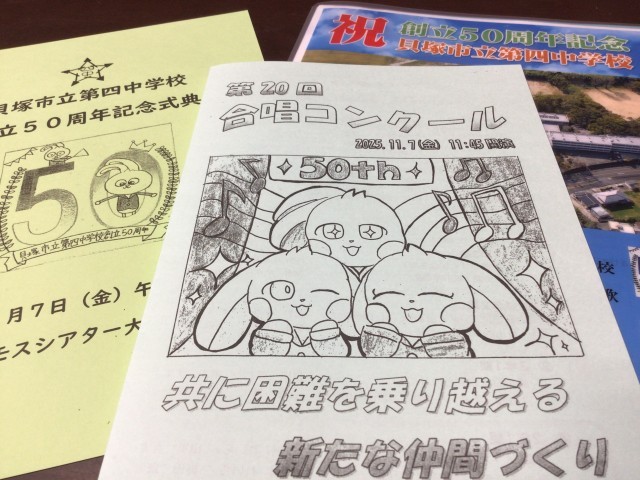 貝塚市立第四中学校
立50周年記念式典
50
貝塚市立第四中学校創立50周年
月7日（金）午
モスシアター大
第20回
合唱コンクール
2025.11.7(金) 11:45開演
50th
共に困難を乗り越える
新たな仲間づくり
祝
創立50周年記念
貝塚市立第四中学校
校
歌